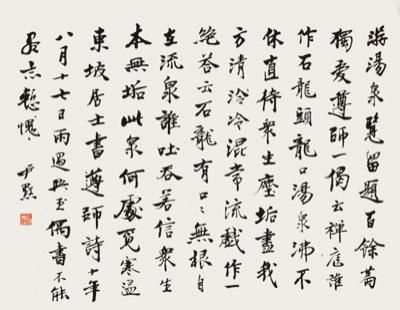 游湯泉覽留題百餘篇
獨愛遵師一偈云禪庭誰
作石龍頭龍口湯泉沸不
休直待衆生塵垢盡我
方清冷冷混常流戲作一
絶答云石龍有口〻無根自
在流泉誰吐吞若信衆生
本無垢此泉何處覓寒温
東坡居士書遵師詩十年
八月十七日雨過興至偶書不能
慙愧 尹默